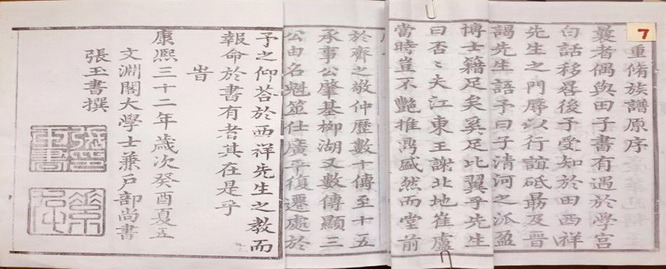 7
重脩族譜原序
曩者偶與田子書有過於學宮
白話移晷後予受知於田西祥
先生之門辱以行誼砥勗及晉
謁先生語予曰子清河之派盈
博士籍足矣奚足比翼乎先生
曰否々夫江東王謝北地崔盧
當時豈不艷推鴻盛然而堂前
於齊之敬仲歷數十傳至十五
承事公肇基柳湖又數傳顯三
公由名魁筮仕廣平復遷處於
予之仰荅於西祥先生之教而
報命於書有者其在是乎
旹
康熙三十二年歲次癸酉夏五
文淵閣大學士兼戶部尚書
張玉書撰